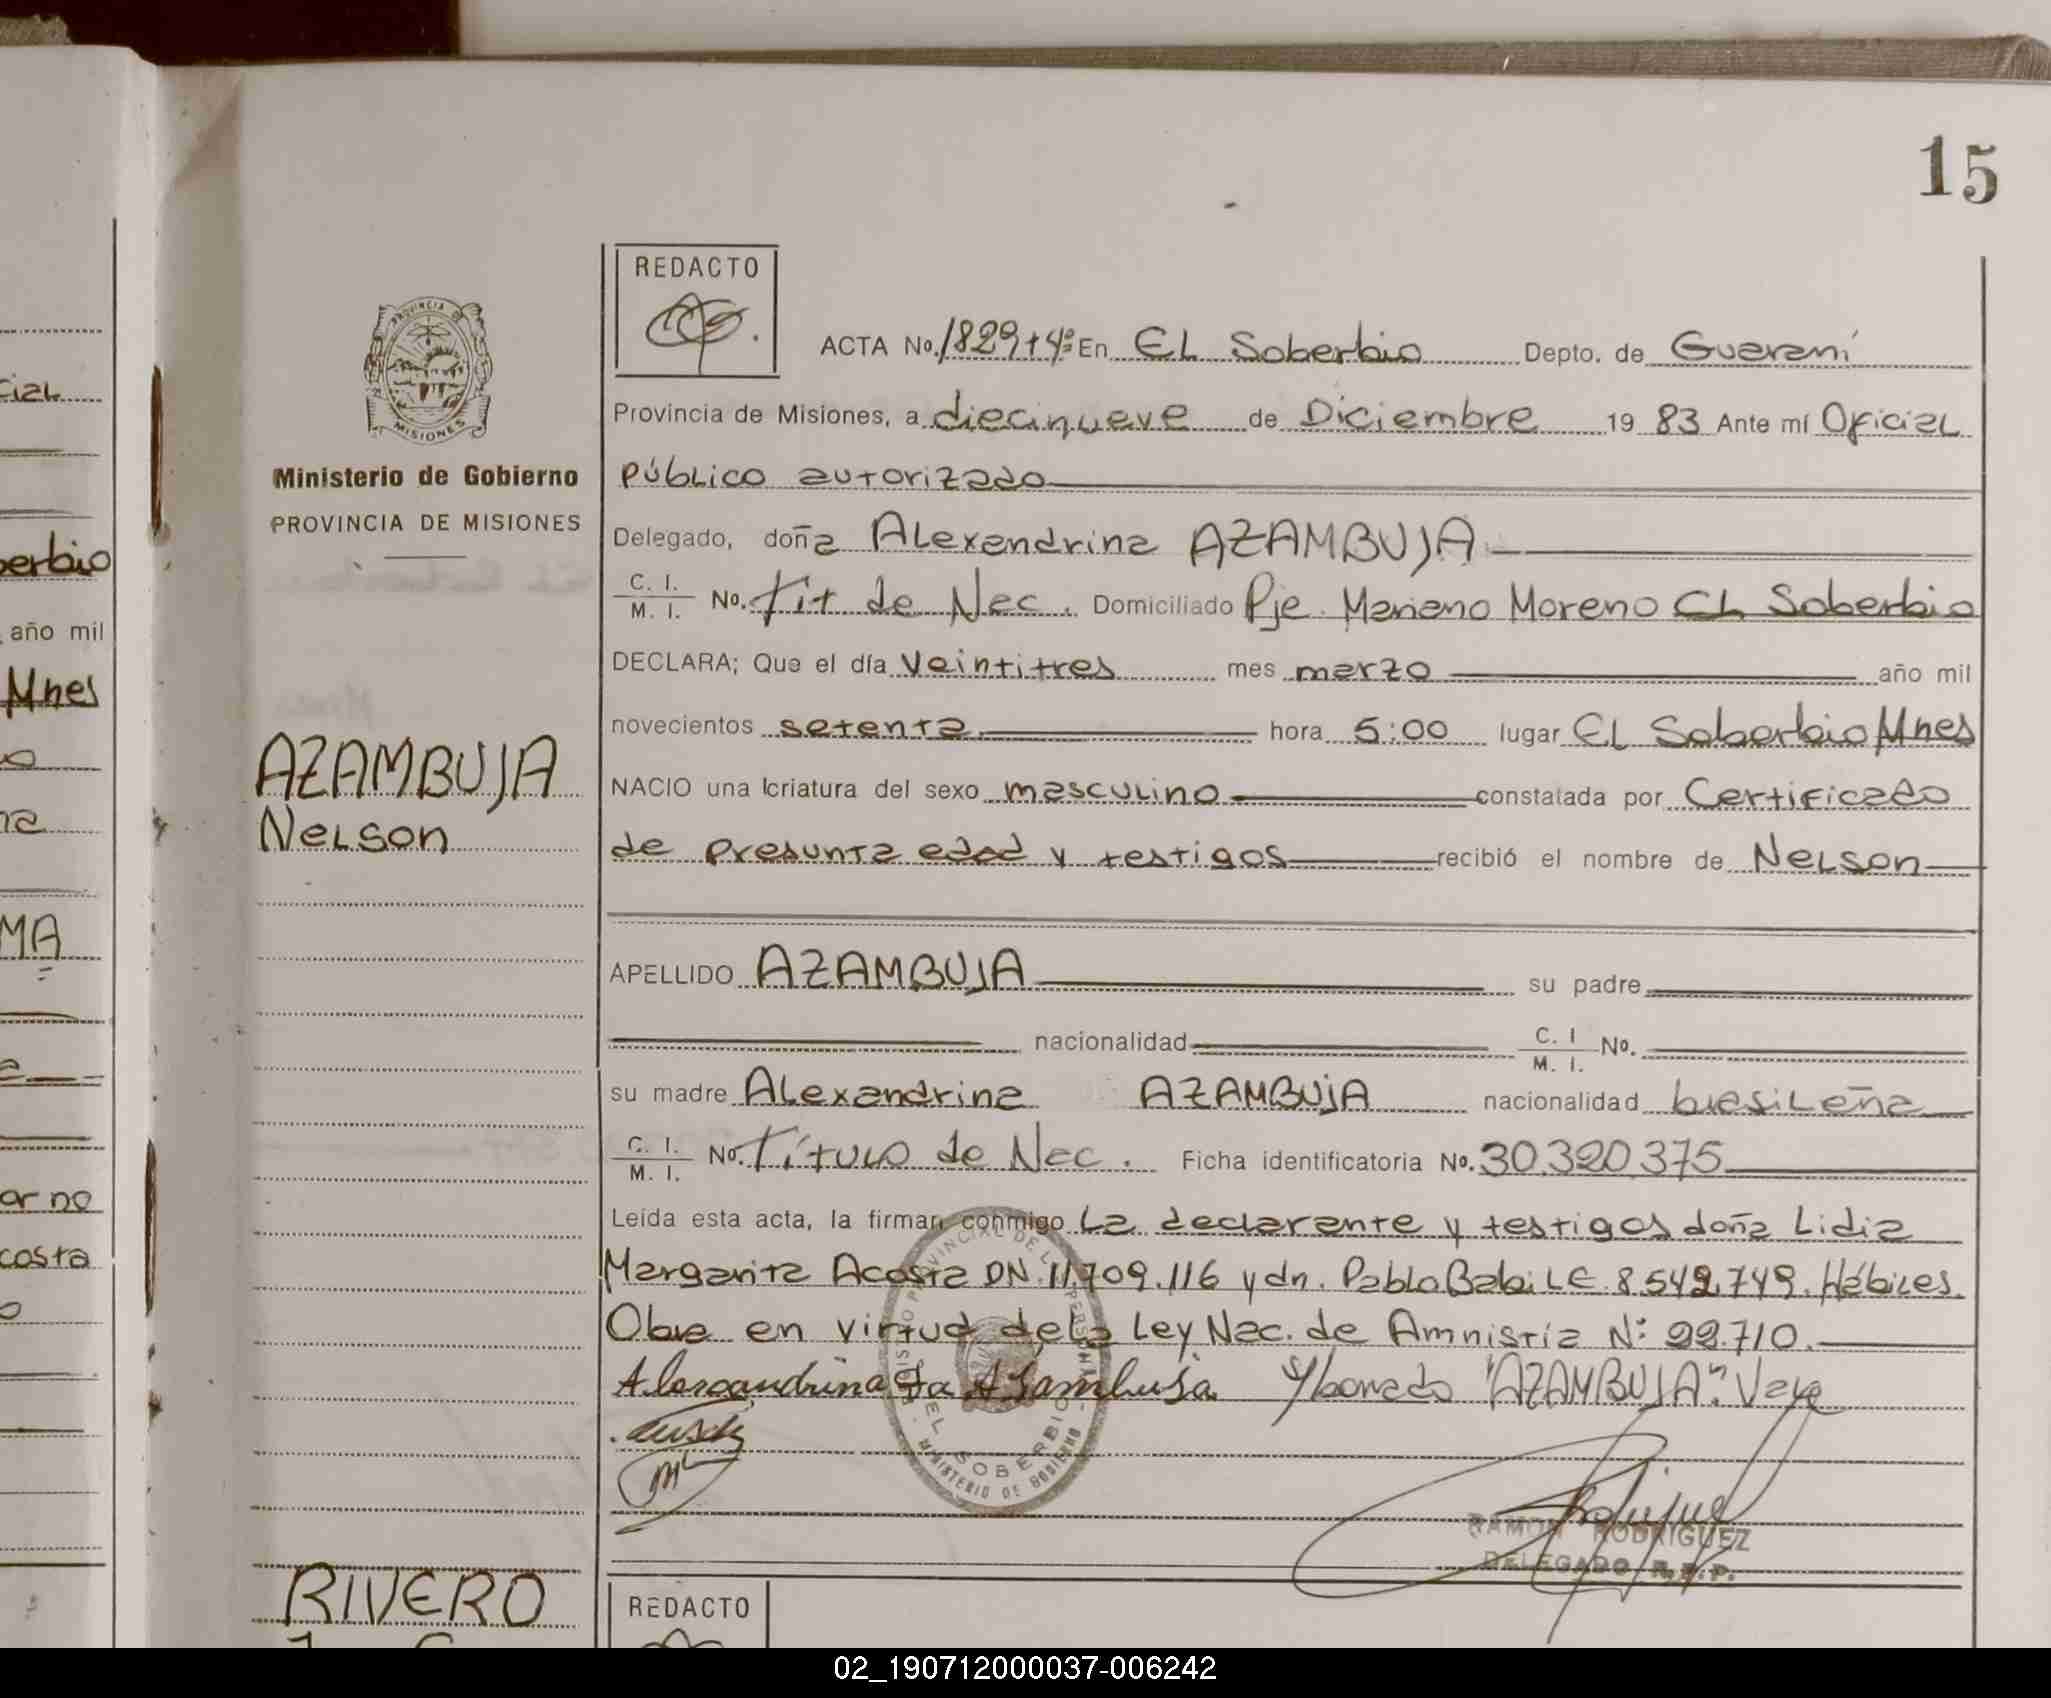 15
REDACTO
ACTA No. 1829 t 4º En EL Soberbio Depto. de Guaraní
Provincia de Misiones, a diecinueve de Diciembre 19 83 Ante mí Oficial
público autorizado
Delegado, doña Alexandrina AZAMBUJA
C. I.
M. I. No. Tit de Nac. Domiciliado Pje. Mariano Moreno EL Soberbio
DECLARA; Que el día Veintitres mes marzo año mil
novecientos setenta hora 5:00 lugar EL Soberbio Mnes
NACIO una criatura del sexo masculino constatada por Certificado
de presunta edad y testigos recibió el nombre de Nelson
APELLIDO AZAMBUJA su padre
nacionalidad C. I
M. I. No.
su madre Alexandrina AZAMBUJA nacionalidad brasileña
C. I.
M. I. No. Título de Nac. Ficha identificatoria No. 30.320.375
Leída esta acta, la firman conmigo La declarante y testigos doña Lidia
Margarita Acosta DN. 11.709.116 y dn. Pablo Babi LE 8.542.749. Hábiles.
Obra en virtud de la Ley Nac. de Amnistía Nº 22.710.
A AZAMBUJA Vale
REGISTRO PROVINCIAL DE LAS PERSONAS
EL SOBERBIO
MINISTERIO DE GOBIERNO
RAMON RODRIGUEZ
DELEGADO R.P.P.
REDACTO
PROVINCIA DE
MISIONES
Ministerio de Gobierno
PROVINCIA DE MISIONES
AZAMBUJA
Nelson
RIVERO
cial
berbio
año mil
Mnes
na
MA
ar no
costa
02_190712000037-006242